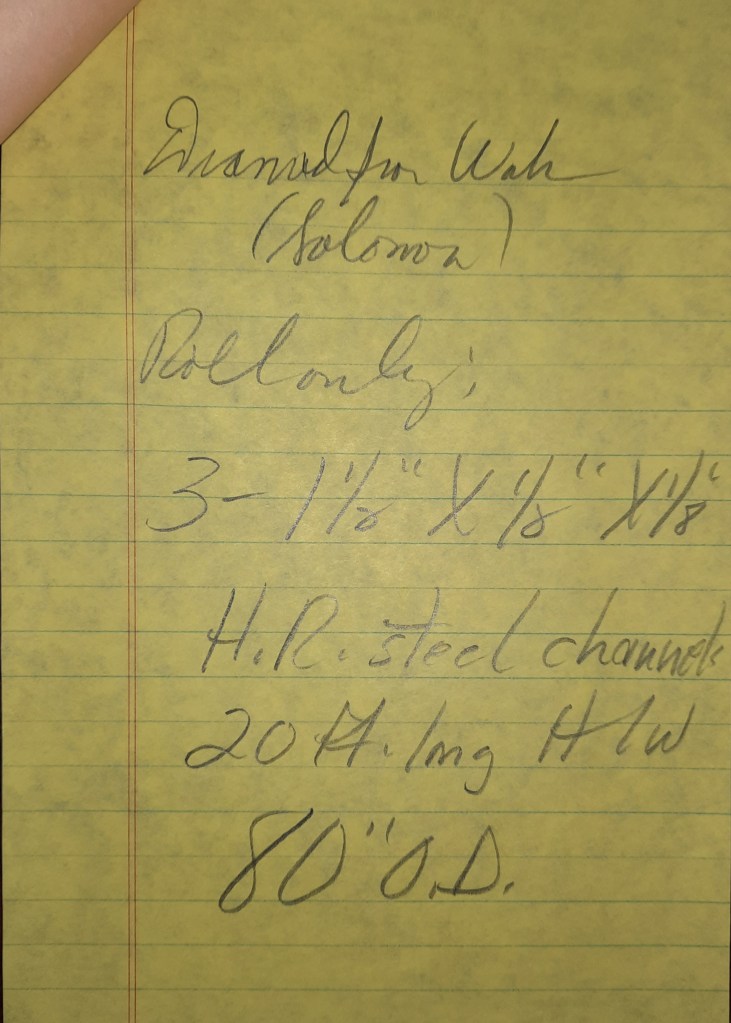 Diamond for Wah
(Solomon)
Roll only:
3- 1 1/2" X 1/2" X 1/8"
H.R. steel channels
20 ft. long
80" O.D.